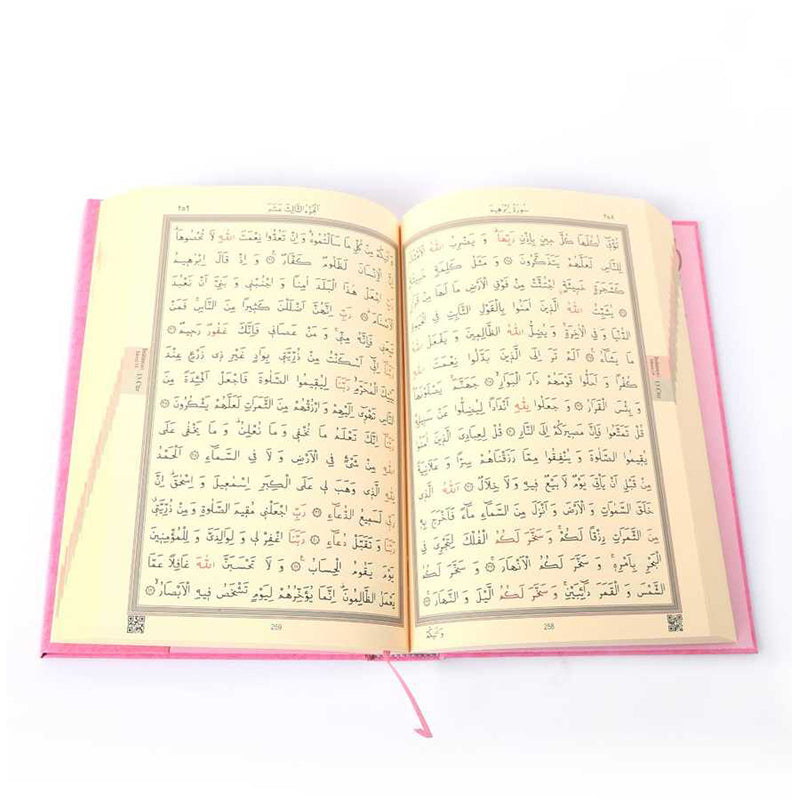 سُورَةُ اِبْرٰهِيمَ ٢٥٨
تُؤْتِٓي اُكُلَهَا كُلَّ حِينٍ بِاِذْنِ رَبِّهَاۜ وَ يَضْرِبُ اللّٰهُ الْاَمْثَالَ
لِلنَّاسِ لَعَلَّهُمْ يَتَذَكَّرُونَ ۝ وَ مَثَلُ كَلِمَةٍ خَبِيثَةٍ
كَشَجَرَةٍ خَبِيثَةٍۨ اجْتُثَّتْ مِنْ فَوْقِ الْاَرْضِ مَا لَهَا مِنْ قَرَارٍ
۝ يُثَبِّتُ اللّٰهُ الَّذِينَ اٰمَنُوا بِالْقَوْلِ الثَّابِتِ فِي الْحَيٰوةِ
الدُّنْيَا وَ فِي الْاٰخِرَةِۚ وَ يُضِلُّ اللّٰهُ الظَّالِمِينَ وَ يَفْعَلُ اللّٰهُ
مَا يَشَٓاءُ۟ ۝ اَلَمْ تَرَ اِلَى الَّذِينَ بَدَّلُوا نِعْمَتَ اللّٰهِ
كُفْرًا وَ اَحَلُّوا قَوْمَهُمْ دَارَ الْبَوَارِۙ ۝ جَهَنَّمَۚ يَصْلَوْنَهَاۜ
وَ بِئْسَ الْقَرَارُ ۝ وَ جَعَلُوا لِلّٰهِ اَنْدَادًا لِيُضِلُّوا عَنْ سَبِيلِهِۜ
قُلْ تَمَتَّعُوا فَاِنَّ مَصِيرَكُمْ اِلَى النَّارِ ۝ قُلْ لِعِبَادِيَ الَّذِينَ اٰمَنُوا
يُقِيمُوا الصَّلٰوةَ وَ يُنْفِقُوا مِمَّا رَزَقْنَاهُمْ سِرًّا وَ عَلَانِيَةً
مِنْ قَبْلِ اَنْ يَأْتِيَ يَوْمٌ لَا بَيْعٌ فِيهِ وَ لَا خِلَالٌ ۝ اَللّٰهُ الَّذِي
خَلَقَ السَّمٰوَاتِ وَ الْاَرْضَ وَ اَنْزَلَ مِنَ السَّمَٓاءِ مَٓاءً فَاَخْرَجَ بِهِ
مِنَ الثَّمَرَاتِ رِزْقًا لَكُمْۚ وَ سَخَّرَ لَكُمُ الْفُلْكَ لِتَجْرِيَ فِي
الْبَحْرِ بِاَمْرِهِۚ وَ سَخَّرَ لَكُمُ الْاَنْهَارَۚ ۝ وَ سَخَّرَ لَكُمُ
الشَّمْسَ وَ الْقَمَرَ دَٓائِبَيْنِۚ وَ سَخَّرَ لَكُمُ الَّيْلَ وَ النَّهَارَۚ ۝
258
وَاٰتٰيكُمْ
اَلْجُزْءُ الثَّالِثَ عَشَرَ ٢٥٩
وَ اٰتٰيكُمْ مِنْ كُلِّ مَا سَاَلْتُمُوهُۜ وَ اِنْ تَعُدُّوا نِعْمَتَ اللّٰهِ لَا تُحْصُوهَاۜ
اِنَّ الْاِنْسَانَ لَظَلُومٌ كَفَّارٌ۟ ۝ وَ اِذْ قَالَ اِبْرٰهِيمُ
رَبِّ اجْعَلْ هٰذَا الْبَلَدَ اٰمِنًا وَ اجْنُبْنِي وَ بَنِيَّ اَنْ نَعْبُدَ
الْاَصْنَامَۜ ۝ رَبِّ اِنَّهُنَّ اَضْلَلْنَ كَثِيرًا مِنَ النَّاسِۚ فَمَنْ
تَبِعَنِي فَاِنَّهُ مِنِّيۚ وَ مَنْ عَصَانِي فَاِنَّكَ غَفُورٌ رَحِيمٌ ۝
رَبَّنَٓا اِنِّٓي اَسْكَنْتُ مِنْ ذُرِّيَّتِي بِوَادٍ غَيْرِ ذِي زَرْعٍ عِنْدَ
بَيْتِكَ الْمُحَرَّمِۙ رَبَّنَا لِيُقِيمُوا الصَّلٰوةَ فَاجْعَلْ اَفْـِٔدَةً مِنَ
النَّاسِ تَهْوِٓي اِلَيْهِمْ وَ ارْزُقْهُمْ مِنَ الثَّمَرَاتِ لَعَلَّهُمْ يَشْكُرُونَ ۝
رَبَّنَٓا اِنَّكَ تَعْلَمُ مَا نُخْفِي وَ مَا نُعْلِنُۜ وَ مَا يَخْفٰى عَلَى
اللّٰهِ مِنْ شَيْءٍ فِي الْاَرْضِ وَ لَا فِي السَّمَٓاءِ ۝ اَلْحَمْدُ
لِلّٰهِ الَّذِي وَهَبَ لِي عَلَى الْكِبَرِ اِسْمٰعِيلَ وَ اِسْحٰقَۜ اِنَّ
رَبِّي لَسَمِيعُ الدُّعَٓاءِ ۝ رَبِّ اجْعَلْنِي مُقِيمَ الصَّلٰوةِ وَ مِنْ ذُرِّيَّتِيۗ
رَبَّنَا وَ تَقَبَّلْ دُعَٓاءِ ۝ رَبَّنَا اغْفِرْ لِي وَ لِوَالِدَيَّ وَ لِلْمُؤْمِنِينَ
يَوْمَ يَقُومُ الْحِسَابُ۟ ۝ وَ لَا تَحْسَبَنَّ اللّٰهَ غَافِلًا عَمَّا
يَعْمَلُ الظَّالِمُونَۜ اِنَّمَا يُؤَخِّرُهُمْ لِيَوْمٍ تَشْخَصُ فِيهِ الْاَبْصَارُۙ ۝
259